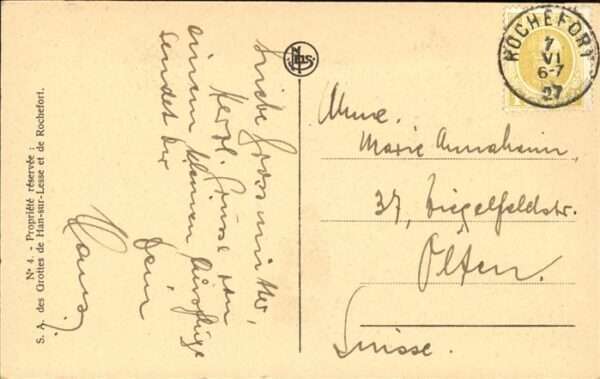 Liebe Grossmutter,
Herzl. Grüsse von
einem kleinen Ausfluge
sendet Dir
Dein
Hans.
Mme.
Marie Annaheim,
37, Ziegelfeldstr.
Olten.
Suisse.
ROCHEFORT
7
VI
6-7
27
N° 4. - Propriété réservée :
S. A. des Grottes de Han-sur-Lesse et de Rochefort.